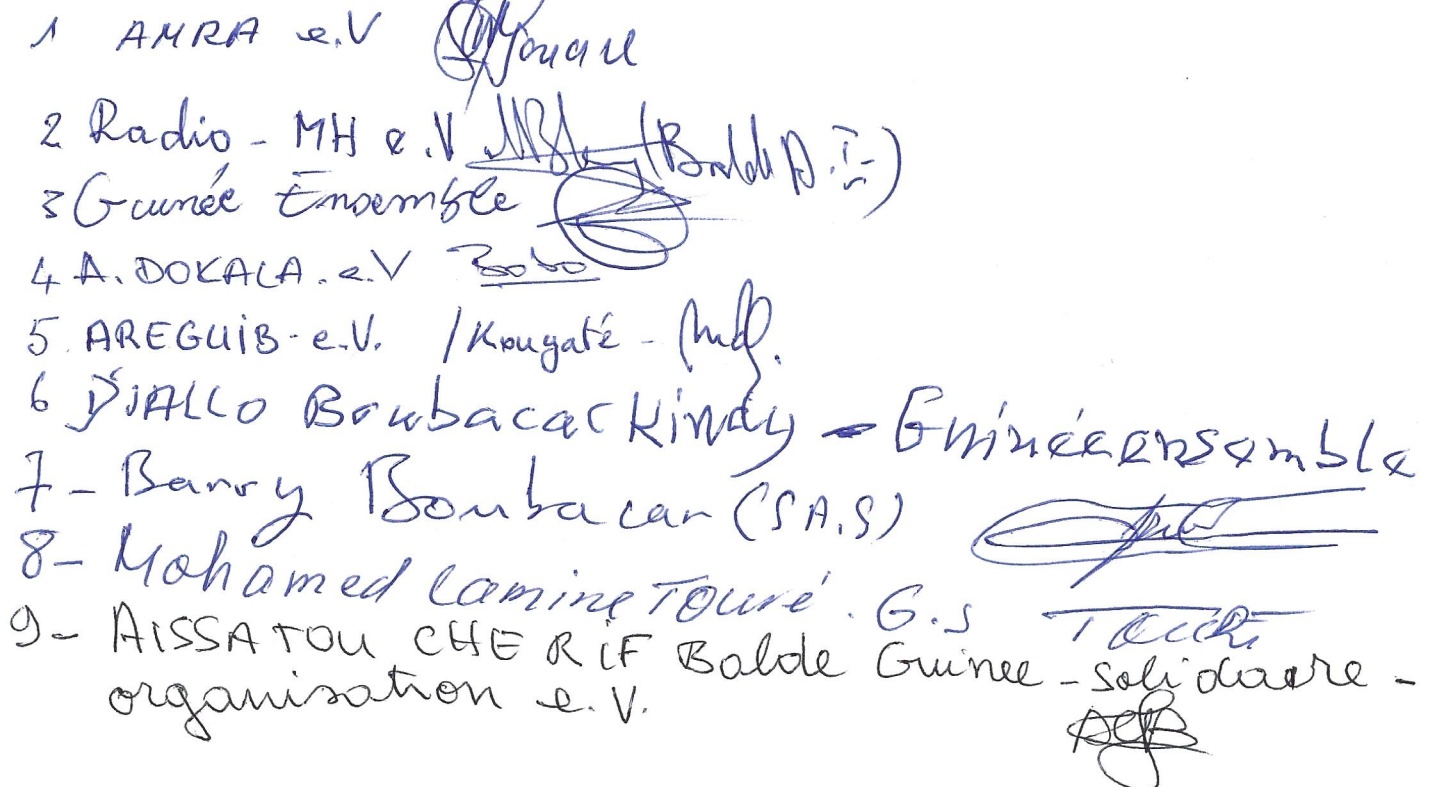 1 AMRA e.V
2 Radio - MH e.V (Balde A.I-)
3 Guinée Ensemble
4 A. DOKALA. e.V Bobo
5. AREGUIB - e.V. / Kougaté -
6 DJALLO Boubacar Kindy - Guinéeensemble
7 - Barry Boubacar (S.A.S)
8 - Mohamed Lamine Touré. G.S Touré
9 - AISSATOU CHERIF Balde Guinee - solidaire -
organisation e.V.
ACB